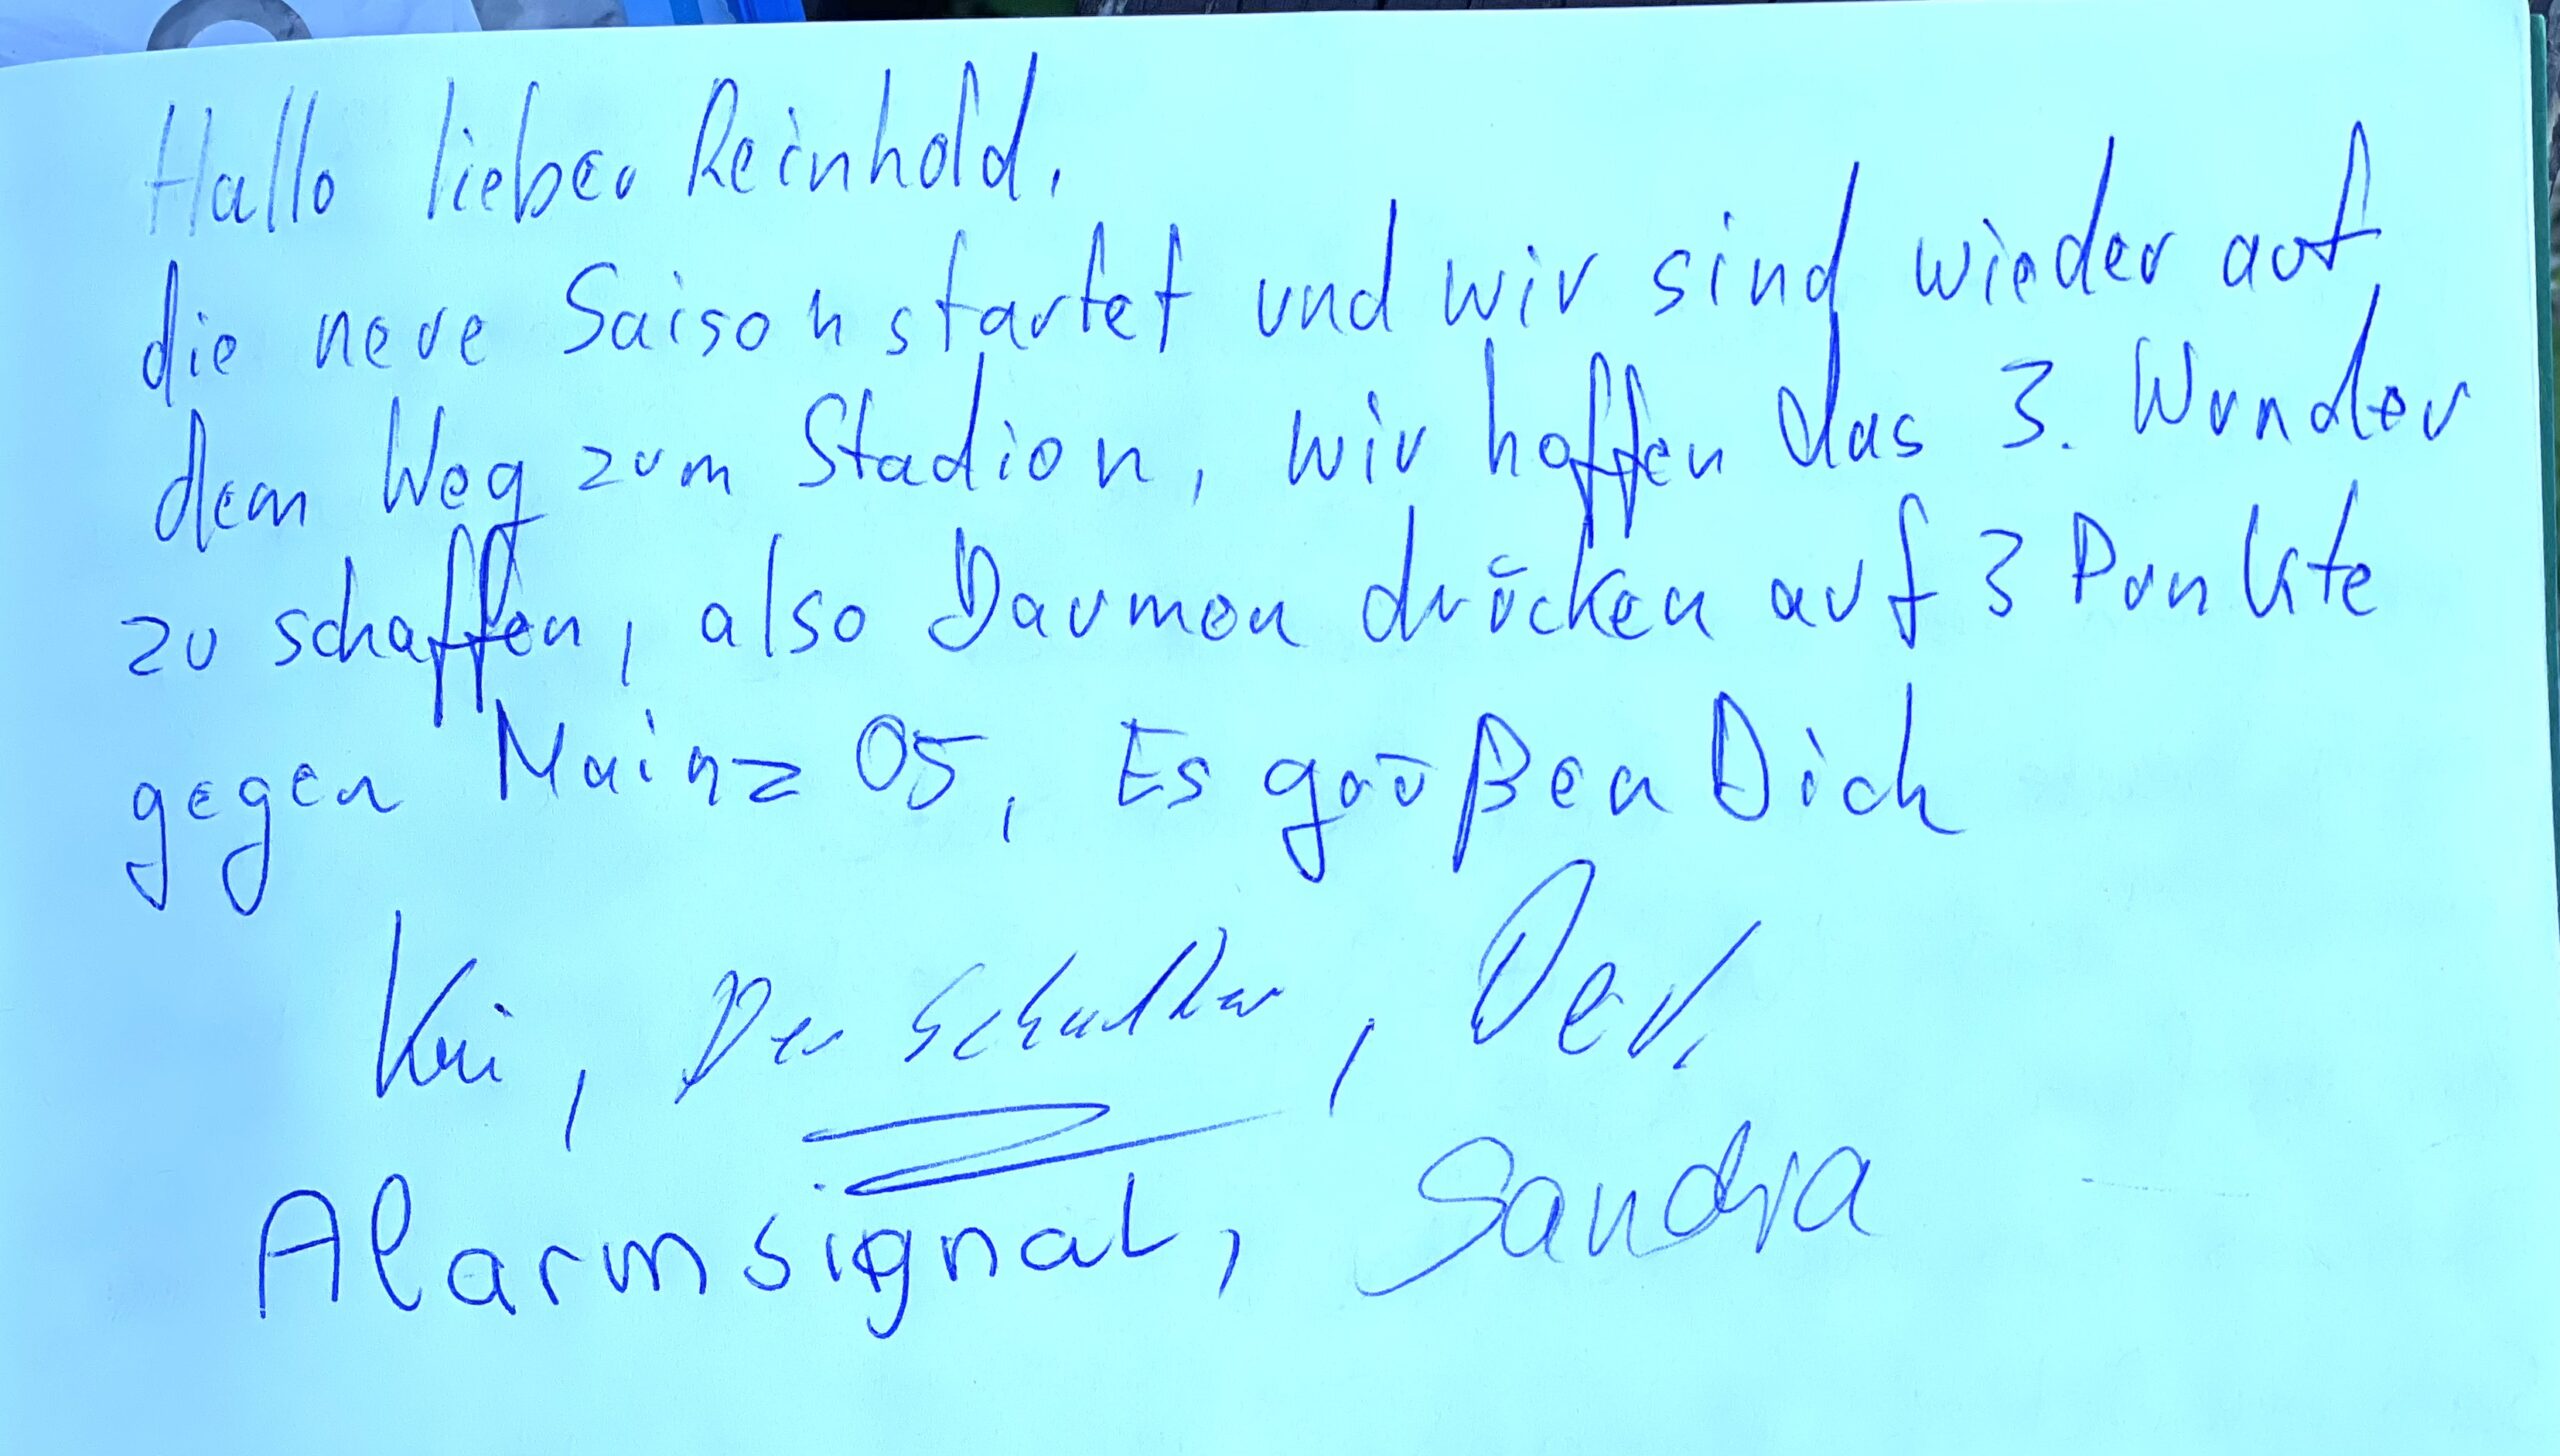 Hallo lieber Reinhold,
die neue Saison startet und wir sind wieder auf
dem Weg zum Stadion, wir hoffen das 3. Wunder
zu schaffen, also Daumen drücken auf 3 Punkte
gegen Mainz 05, Es grüßen Dich
Kai, Der
Alarmsignal, Sandra